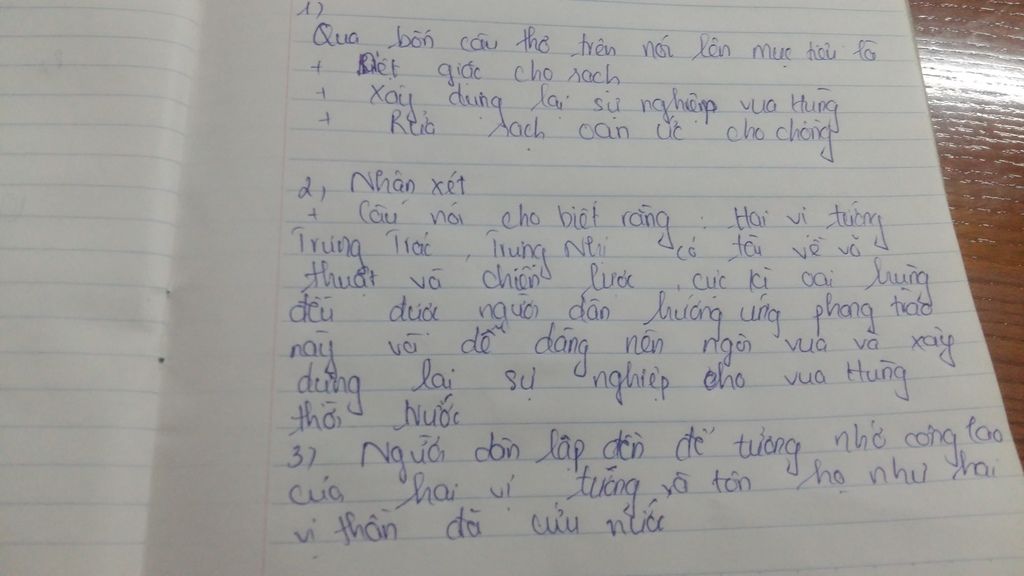 1)
Qua bốn câu thơ trên nói lên mục tiêu là
+ Diệt giặc cho sạch
+ Xây dựng lại sự nghiệp vua Hùng
+ Rửa sạch oan ức cho chồng
2, Nhận xét
+ Câu nói cho biết rằng : Hai vị tướng
Trưng Trắc, Trưng Nhị có tài về võ
thuật và chiến lược, cực kì oai hùng
đều được người dân hưởng ứng phong trào
này và dễ dàng nên ngôi vua và xây
dựng lại sự nghiệp cho vua Hùng
thời Nước
3) Người dân lập đền để tưởng nhớ công lao
của hai vị tướng và tôn họ như hai
vị thần đã cứu nước